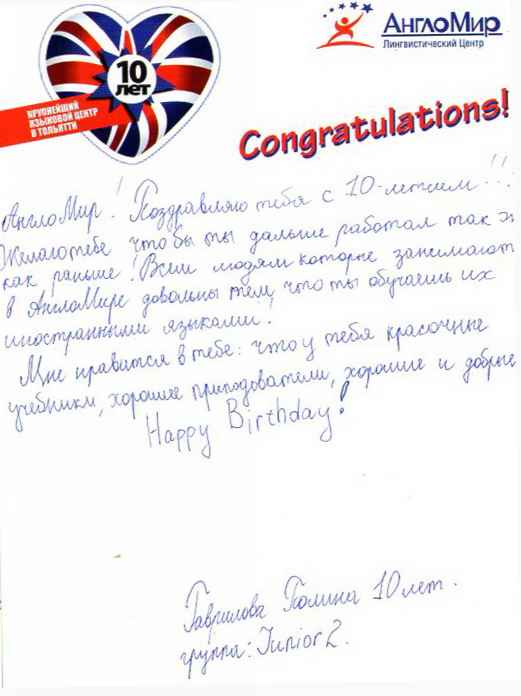 10
ЛЕТ
КРУПНЕЙШИЙ
ЯЗЫКОВОЙ ЦЕНТР
В ТОЛЬЯТТИ
АнглоМир
Лингвистический Центр
Congratulations!
АнглоМир! Поздравляю тебя с 10-летием!!!
Желаю тебе что бы ты дальше работал так ж
как раньше! Всем людям которые занимают
в АнглоМире довольны тем, что ты обучаешь их
иностранными языками!
Мне нравится в тебе: что у тебя красочные
учебники, хорошее приподователи, хорошие и добрые
Happy Birthday!
Гаврилова Полина 10 лет.
группа: Junior 2.